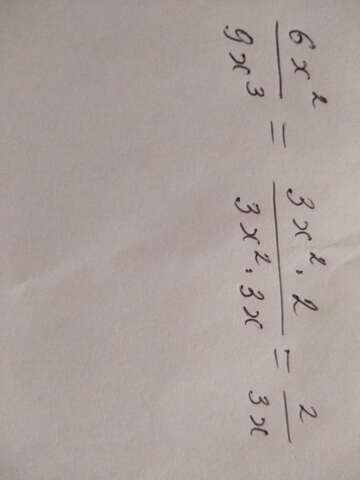 6x² / 9x³ = 3x²·2 / 3x²·3x = 2 / 3x